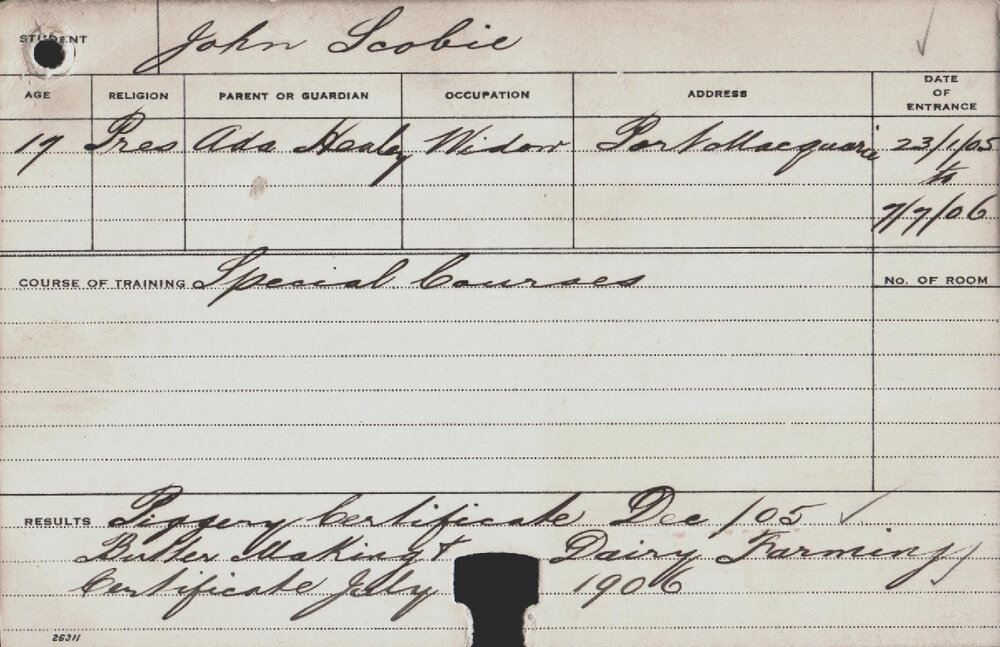 STUDENT John Scobie
AGE RELIGION PARENT OR GUARDIAN OCCUPATION ADDRESS DATE OF ENTRANCE
19 Pres Ada Healey Widow Port Macquarie 23/1/05
to
7/7/06
COURSE OF TRAINING Special Courses No. OF ROOM
RESULTS Piggery Certificate Dec /05 ✓
Butter Making & Dairy Farming
Certificate July 1906
26311